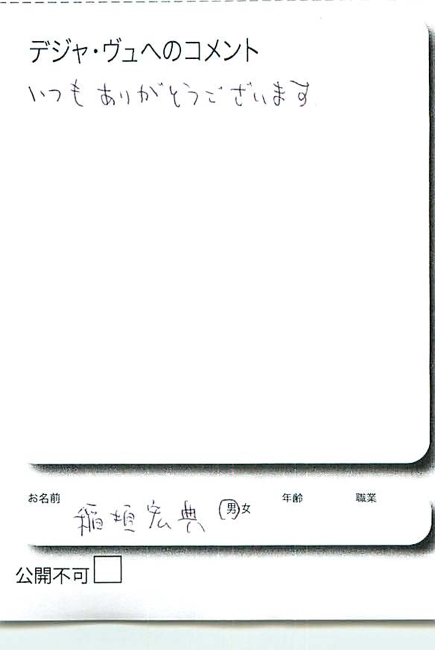 デジャ・ヴュへのコメント
いつもありがとうございます
お名前 稲垣宏典 男女 年齢 職業
公開不可